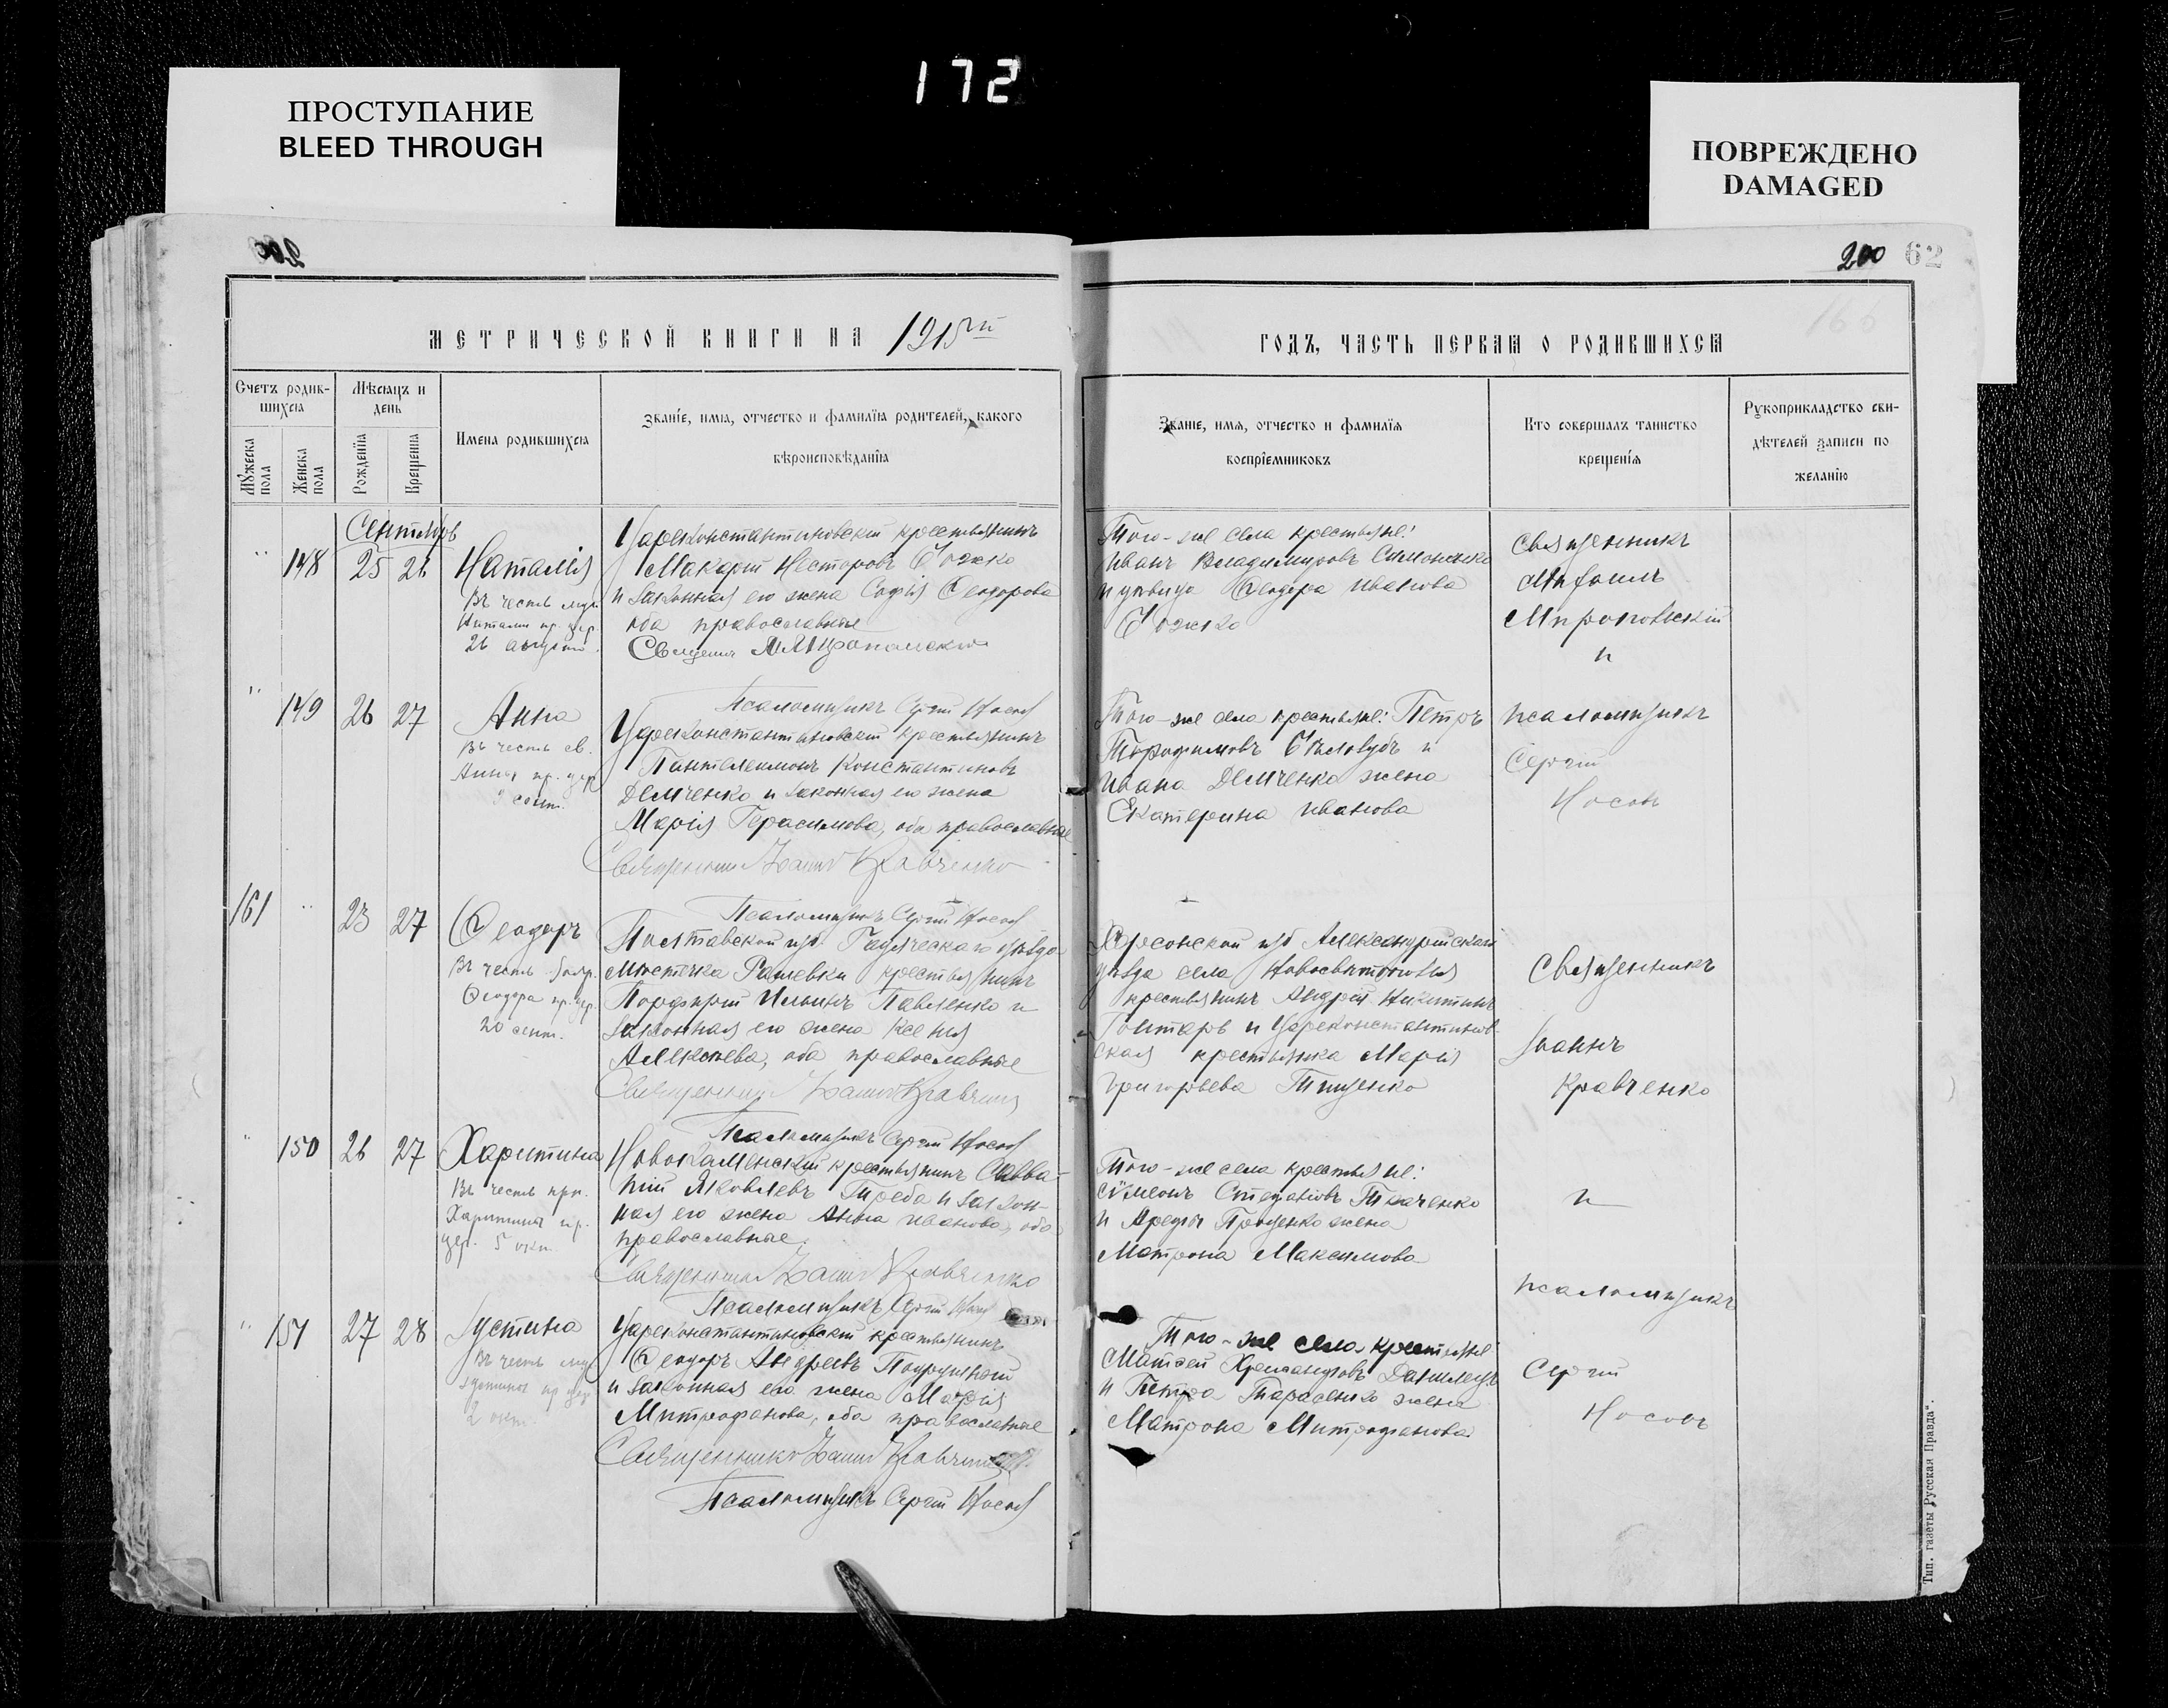 172
ПРОСТУПАНИЕ
BLEED THROUGH
ПОВРЕЖДЕНО
DAMAGED
200 62
МЕТРИЧЕСКОЙ КНИГИ НА 1915ый
ГОДЪ, ЧАСТЬ ПЕРВАЯ О РОДИВШИХСЯ
Счетъ родив-
шихся
Мужеска пола
Женска пола
Мѣсяцъ и день
Рожденія
Крещенія
Имена родившихся
Званіе, имя, отчество и фамилія родителей, какого
вѣроисповѣданія
Званіе, имя, отчество и фамилія
воспріемниковъ
Кто совершалъ таинство
крещенія
Рукоприкладство сви-
дѣтелей записи по
желанію
Сентябрь
148 25 26 Наталія
Въ честь муч.
Наталіи пр. цер.
26 августа
Цареконстантиновскій крестьянинъ
Макарій Несторовъ Божко
и законная его жена Софія Ѳеодорова
оба православные
Того-же села крестьяне:
Иванъ Владимировъ Симоненко
и дѣвица Ѳеодора Иванова
Божко
Священникъ
Михаилъ
и
" 149 26 27 Анна
Въ честь св.
Анны пр. цер.
9 сент.
Псаломщикъ Сергій Носовъ
Цареконстантиновскій крестьянинъ
Пантелеимонъ Константиновъ
Демченко и законная его жена
Марія Герасимова, оба православные
Священникъ Іоаннъ Кравченко
Того-же села крестьяне: Петръ
Трофимовъ Бѣлозубъ и
Ивана Демченко жена
Екатерина Иванова
псаломщикъ
Сергій
Носовъ
161 " 23 27 Ѳеодоръ
Въ честь
Ѳеодора пр. цер.
20 сент.
Псаломщикъ Сергій Носовъ
Полтавской губ. Гадячскаго уѣзда
мѣстечка Рашевки крестьянинъ
Порфирій Ильинъ Павленко и
законная его жена Ксенія
Алексѣева, оба православные
Священникъ Іоаннъ Кравченко
Херсонской губ Александрійскаго
уѣзда села
крестьянинъ Андрей Никитинъ
Гонтарь и Цареконстантинов-
ская крестьянка Марія
Григорьева Тищенко
Священникъ
Іоаннъ
Кравченко
" 150 26 27 Харитина
Въ честь
Харитины пр.
цер. 5 окт.
Псаломщикъ Сергій Носовъ
Новокаменскій крестьянинъ Савва-
тій Яковлевъ Гиреба и закон-
ная его жена Анна Иванова, оба
православные.
Священникъ Іоаннъ Кравченко
Того-же села крестьяне:
Сѵмеонъ Стефановъ Ткаченко
и Арефы Проценко жена
Матрона Максимова
и
псаломщикъ
" 151 27 28 Іустина
Въ честь муч.
Іустины пр. цер.
2 окт.
Псаломщикъ Сергій Носовъ
Цареконстантиновскій крестьянинъ
Ѳеодоръ Андреевъ
и законная его жена Марія
Митрофанова, оба православные
Священникъ Іоаннъ Кравченко
Псаломщикъ Сергій Носовъ
Того-же села крестьяне:
Матѳей
и Петра Тарасенко жена
Матрона Митрофанова.
Сергій
Носовъ
Тип. газеты Русская Правда".